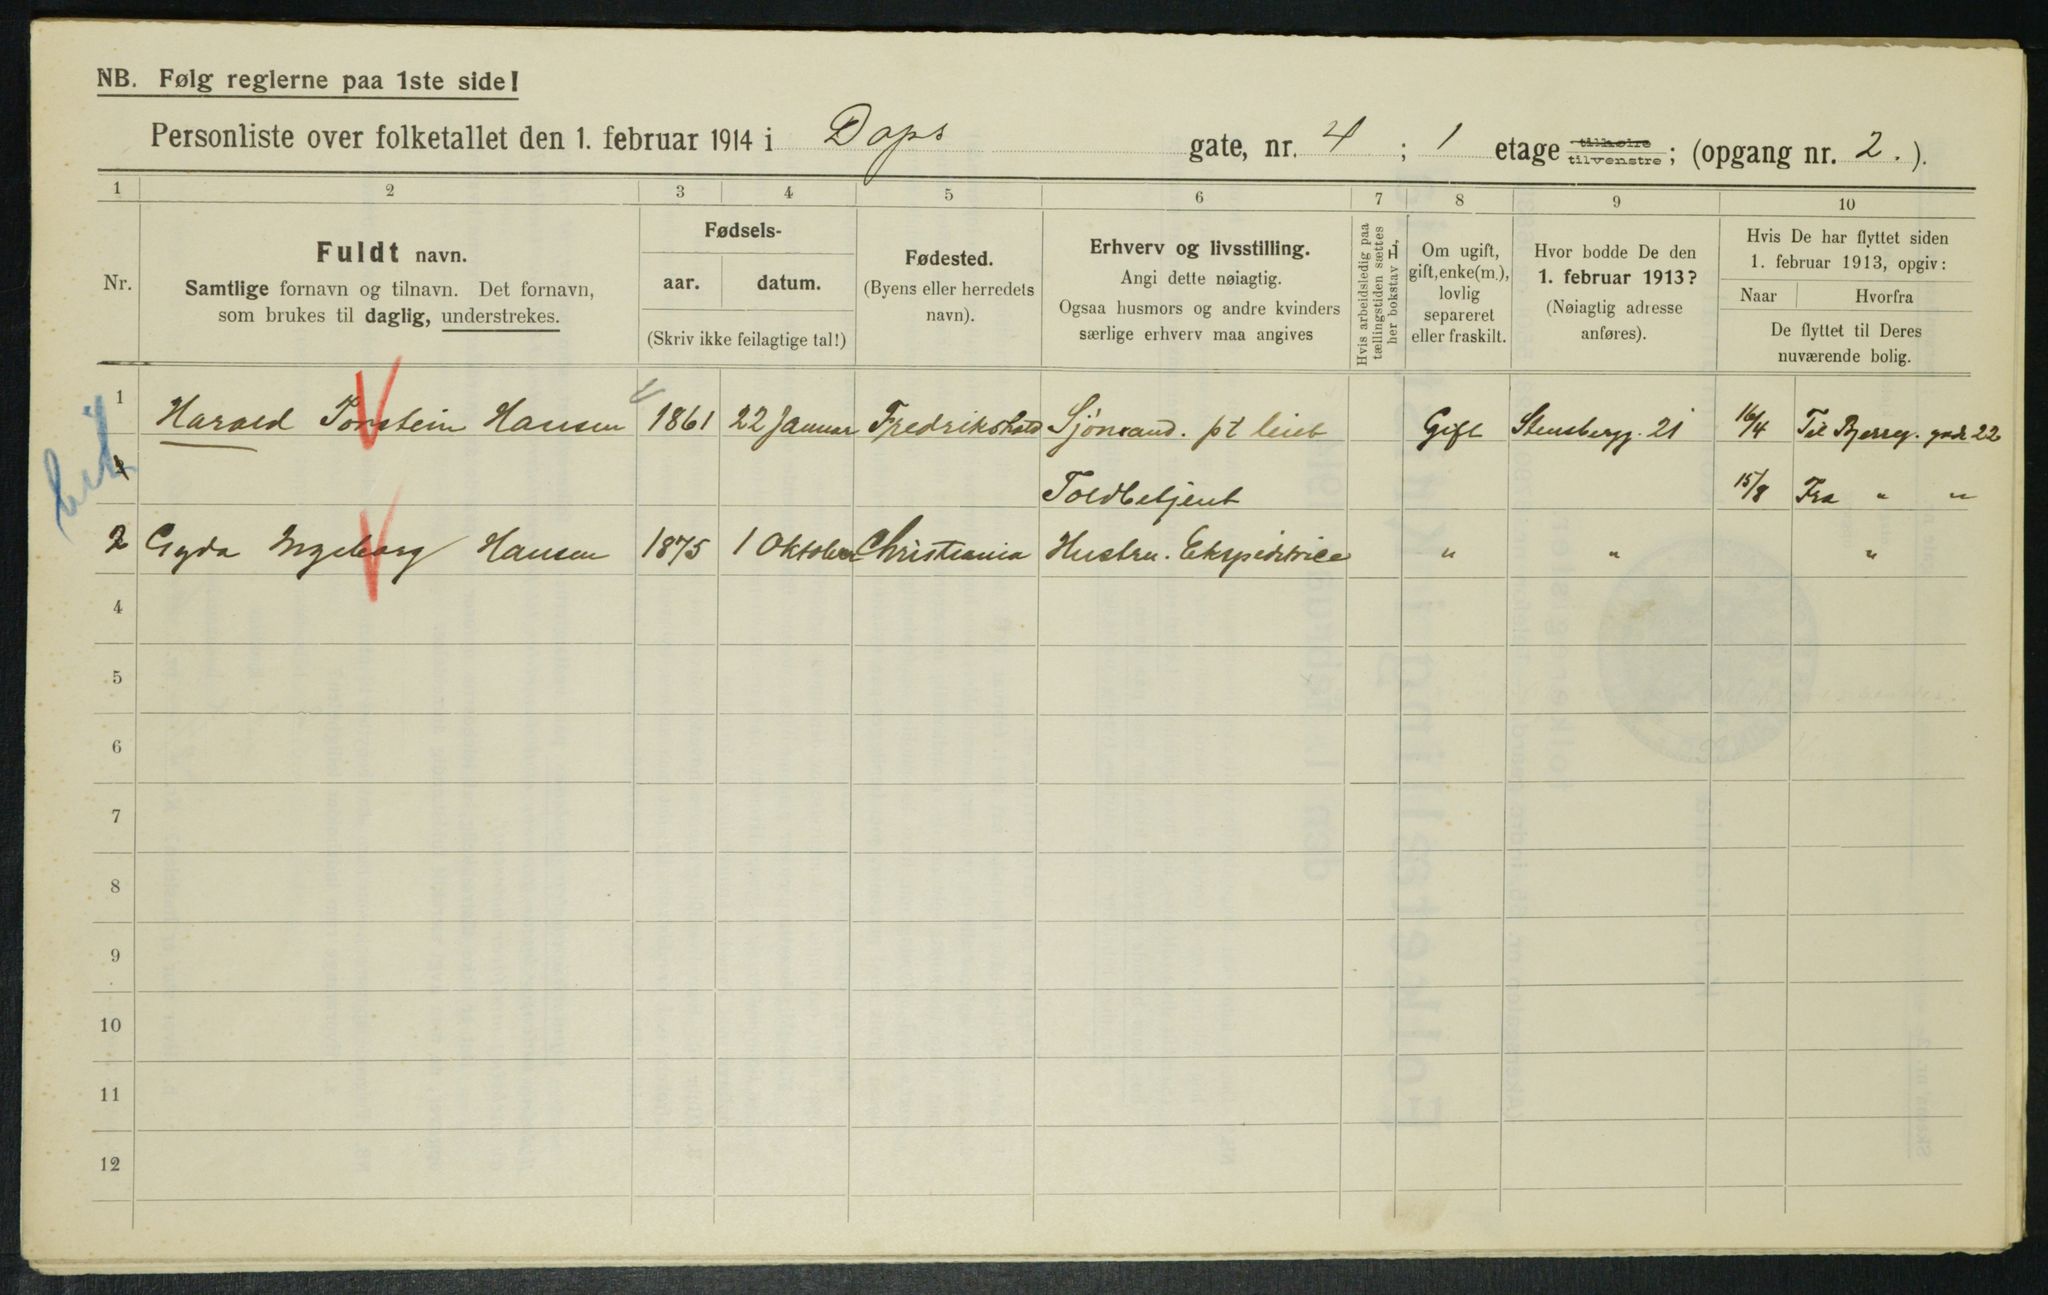 NB. Følg reglerne paa 1ste side!
Personliste over folketallet den 1. februar 1914 i Dops gate, nr. 4 ; 1 etage tilhøire tilvenstre; (opgang nr. 2.).
1 2 3 4 5 6 7 8 9 10
Nr.
Fuldt navn.
Samtlige fornavn og tilnavn. Det fornavn,
som brukes til daglig, understrekes.
Fødsels-
aar. datum.
(Skriv ikke feilagtige tal!)
Fødested.
(Byens eller herredets
navn).
Erhverv og livsstilling.
Angi dette nøiagtig.
Ogsaa husmors og andre kvinders
særlige erhverv maa angives
Hvis arbeidsledig paa
tællingstiden sættes
her bokstav L.
Om ugift,
gift, enke(m.),
lovlig
separeret
eller fraskilt.
Hvor bodde De den
1. februar 1913?
(Nøiagtig adresse
anføres).
Hvis De har flyttet siden
1. februar 1913, opgiv:
Naar Hvorfra
De flyttet til Deres
nuværende bolig.
1 Harald Torstein Hansen 1861 22 Januar Fredrikshald Sjömand. pt Gift Stensbergg. 21 16/4 Til Bjerreg. gade 22
Toldbetjent 15/8 Fra " "
2 Gyda Ingeborg Hansen 1875 1 Oktober Christiania Hustru. Ekspeditrice " " "
4
5
6
7
8
9
10
11
12